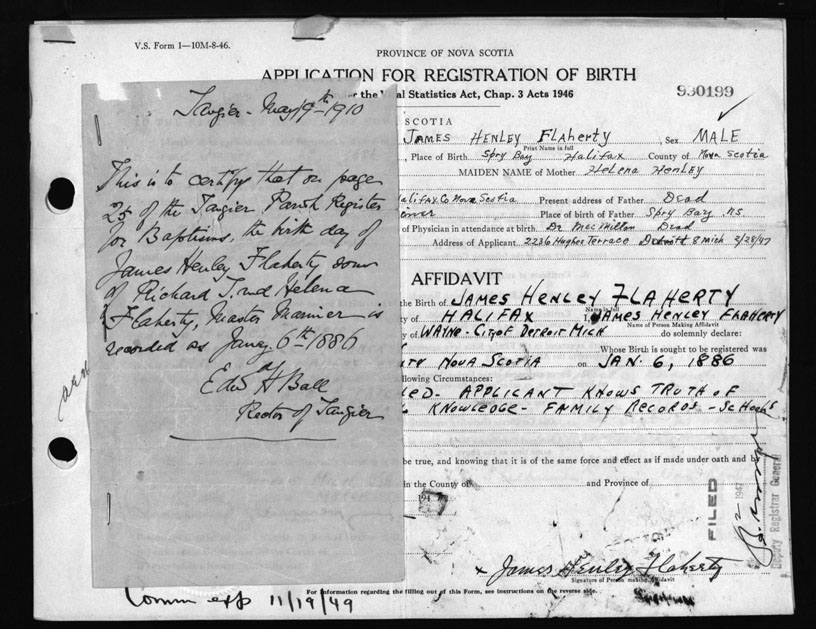 V.S. Form 1—10M-8-46.
PROVINCE OF NOVA SCOTIA
APPLICATION FOR REGISTRATION OF BIRTH
al Statistics Act, Chap. 3 Acts 1946
930199
SCOTIA
JAMES HENLEY FLAHERTY Sex MALE
Print Name in full
Place of Birth Spry Bay Halifax County of Nova Scotia
MAIDEN NAME of Mother HELENA HENLEY
alifax Co Nova Scotia Present address of Father Dead
Place of birth of Father SPRY BAY N.S.
of Physician in attendance at birth Dr McMillan Dead
Address of Applicant 2236 Hughes Terrace Detroit 8 Mich 2/28/47
AFFIDAVIT
the Birth of JAMES HENLEY FLAHERTY
Name in full
ty of HALIFAX I, JAMES HENLEY FLAHERTY
Name of Person Making Affidavit
of WAYNE - CITY OF DETROIT MICH do solemnly declare:
Whose Birth is sought to be registered was
NOVA SCOTIA on JAN. 6, 1886
llowing Circumstances:
APPLICANT KNOWS TRUTH OF
KNOWLEDGE - FAMILY RECORDS - SCHOOLS
be true, and knowing that it is of the same force and effect as if made under oath and b
in the County of and Province of
194
FILED
2 1947
Deputy Registrar General
x James Henley Flaherty
Signature of Person making Affidavit
For Information regarding the filling out of this Form, see instructions on the reverse side.
Comm exp 11/19/49
Tangier - May 19th 1910
This is to certify that on page
25 of the Tangier Parish Register
for Baptisms, the birth day of
James Henley Flaherty son
of Richard J. and Helena
Flaherty, Master Mariner is
recorded as Janry 6th 1886
Edwd H Ball
Rector of Tangier